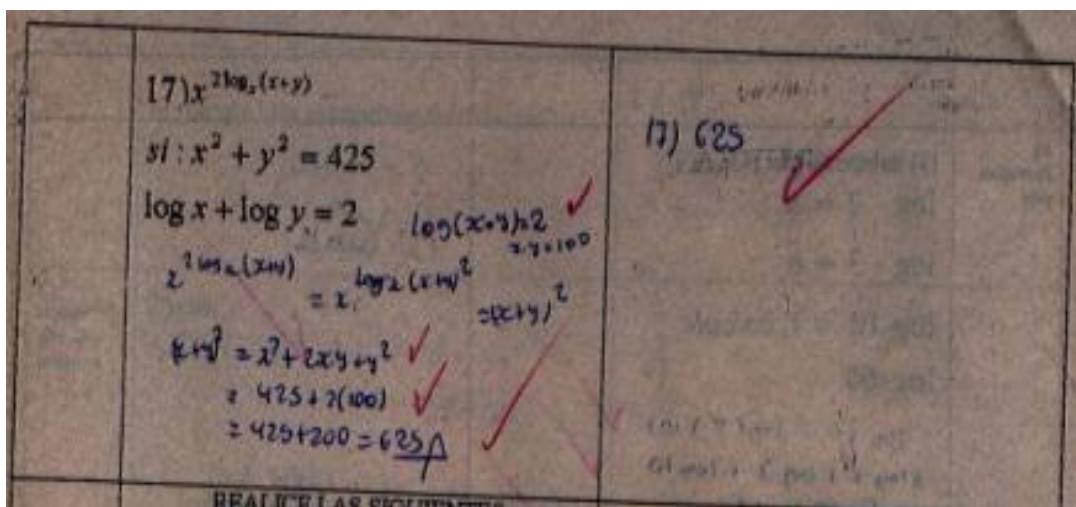 17) x^{2log_x(x+y)}
si : x² + y² = 425
log x + log y = 2
log(x·y)=2
x·y=100
x^{2log_x(x+y)} = x^{log_x(x+y)²} =(x+y)²
(x+y)² = x²+2xy+y²
= 425+2(100)
= 425+200 = 625
17) 625
REALICE LAS SIGUIENTES